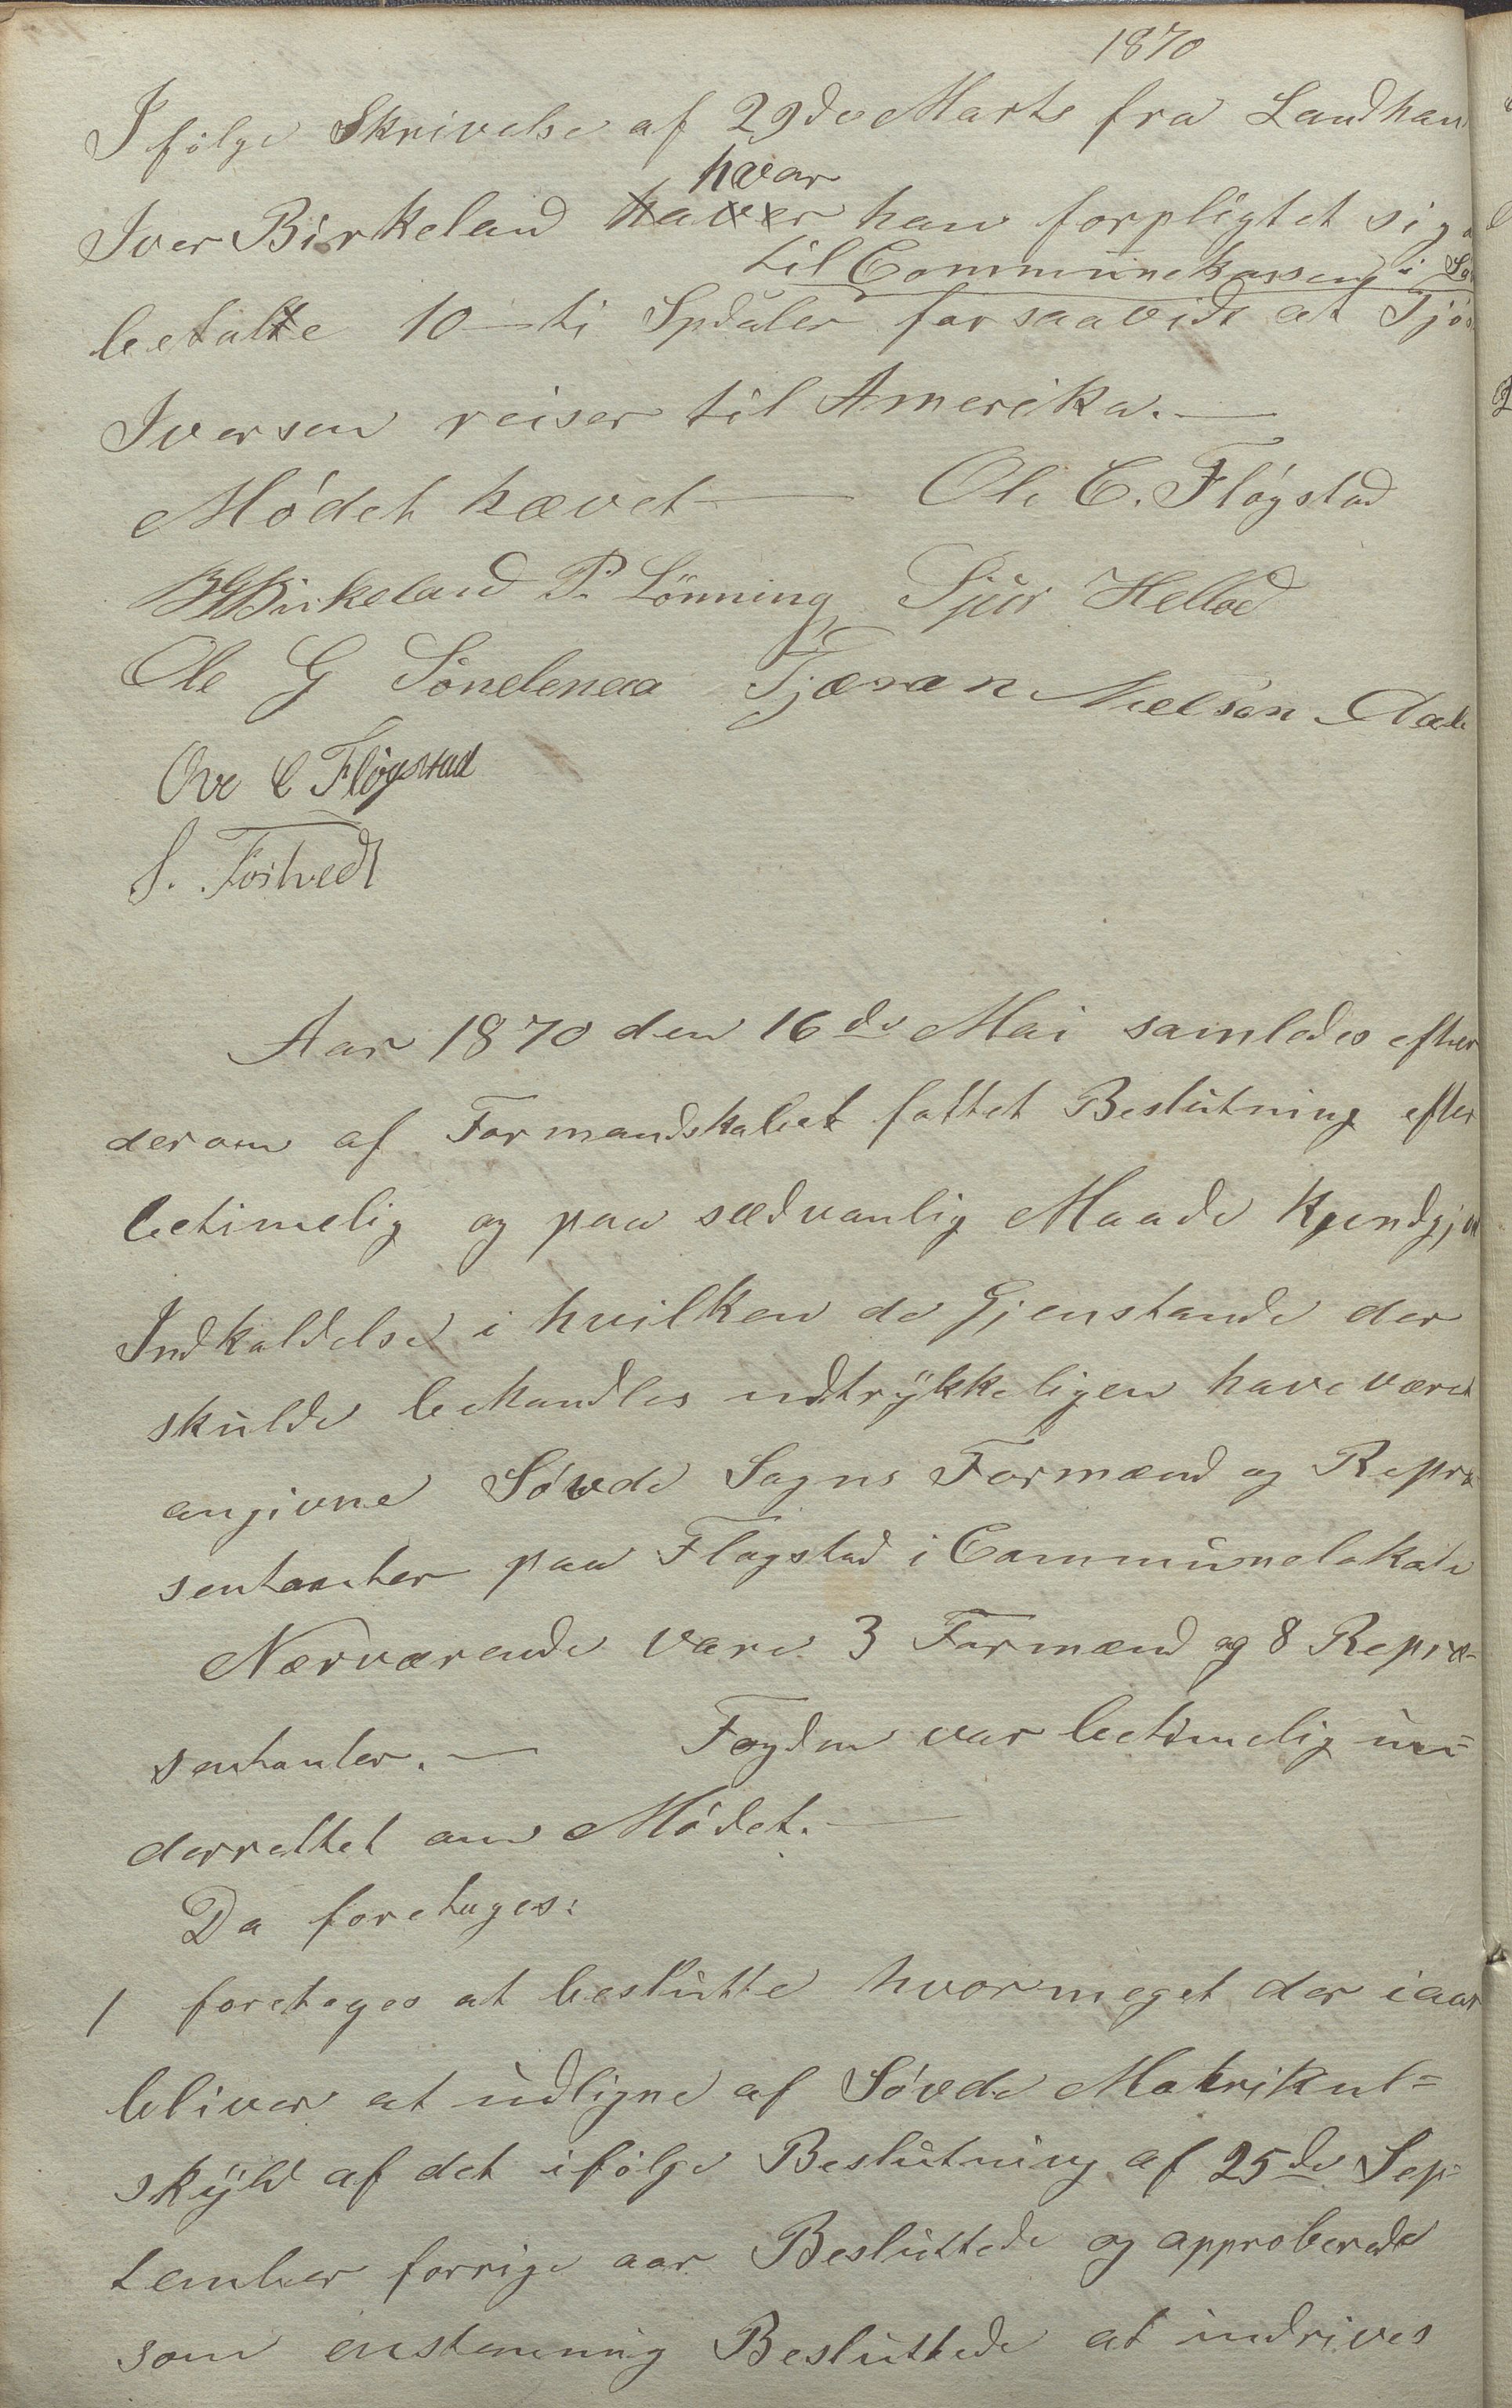 1870
I følge Skrivelse af 29de Marts fra Landhan
hvor
Iver Birkeland haver han forpligtet sig
til Communekassen i
betalte 10 – ti Spdaler forsaavidt at
Iversen reiser til Amerika. —
Mødet hævet — Ole C. Fløgstad
Birkeland P. Lönning Sjur Helland
Ole G Søndenaa Tjæran Nielsen
Ove C Fløgstad
S. Tostvedt
Aar 1870 den 16de Mai samledes efter
derom af Formandskabet fattet Beslutning efter
betimelig og paa sædvanlig Maade Kjendgjor
Indkaldelse i hvilken de Gjenstande der
skulde behandles udtrykkeligen have været
angivne Søvde Sogns Formænd og Repræ
sentanter paa Flogstad i Communelokale
Nærværende vare 3 Formænd og 8 Repræ-
sentanter. — Fogden var betimelig un=
derrettet om Mødet. —
Da foretoges:
1 foretoges at beslutte hvormeget der iaar
bliver at udligne af Søvde Matrikul=
skyld af det ifølge Beslutning af 25de Sep=
tember forrige aar Besluttede og approberede
som enstemmig Besluttede at inddrives